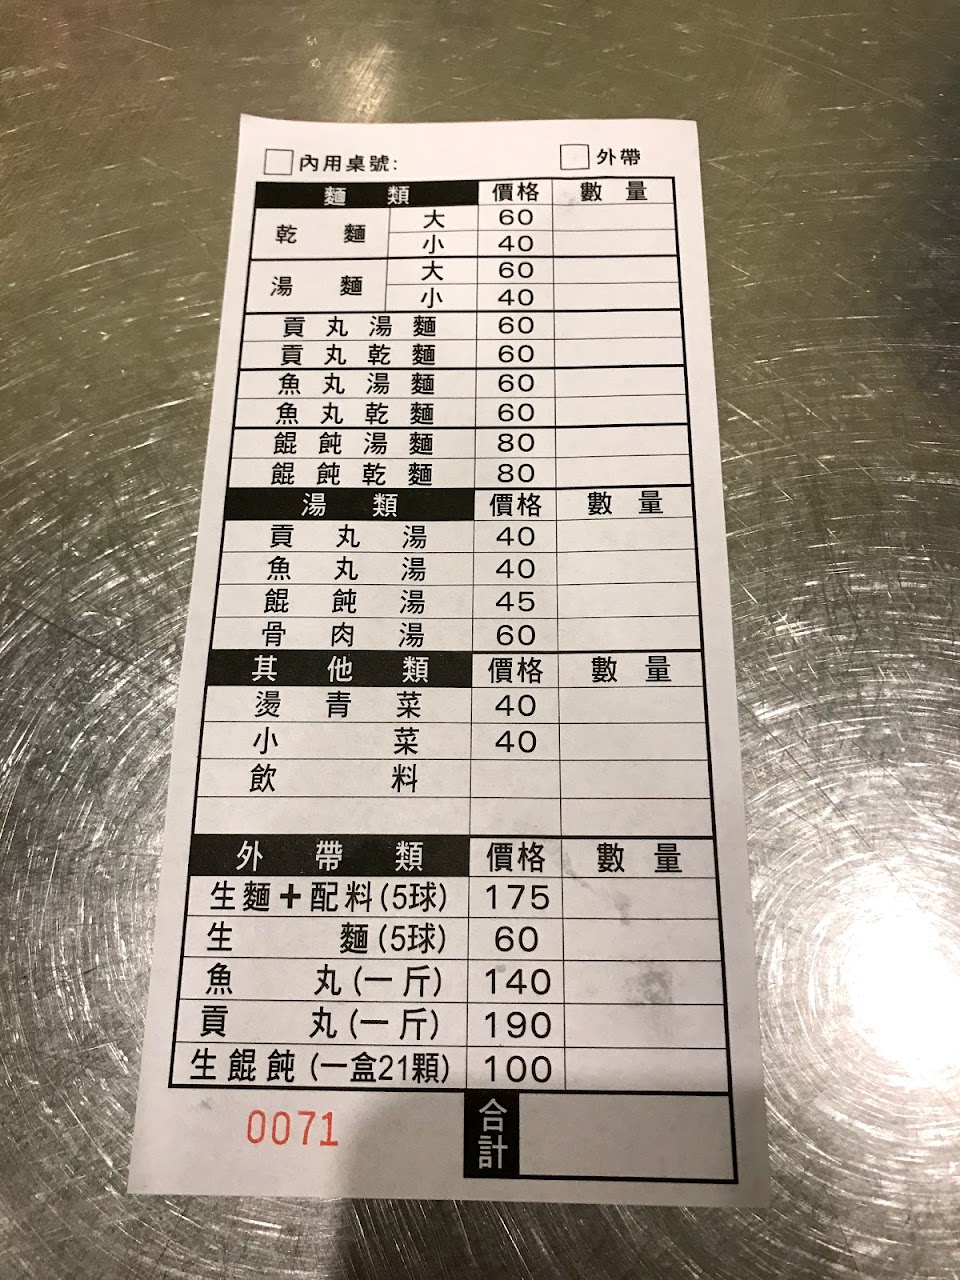 內用桌號: 外帶
麵類 價格 數量
乾麵 大 60
小 40
湯麵 大 60
小 40
貢丸湯麵 60
貢丸乾麵 60
魚丸湯麵 60
魚丸乾麵 60
餛飩湯麵 80
餛飩乾麵 80
湯類 價格 數量
貢丸湯 40
魚丸湯 40
餛飩湯 45
骨肉湯 60
其他類 價格 數量
燙青菜 40
小菜 40
飲料
外帶類 價格 數量
生麵+配料(5球) 175
生麵(5球) 60
魚丸(一斤) 140
貢丸(一斤) 190
生餛飩(一盒21顆) 100
0071 合計